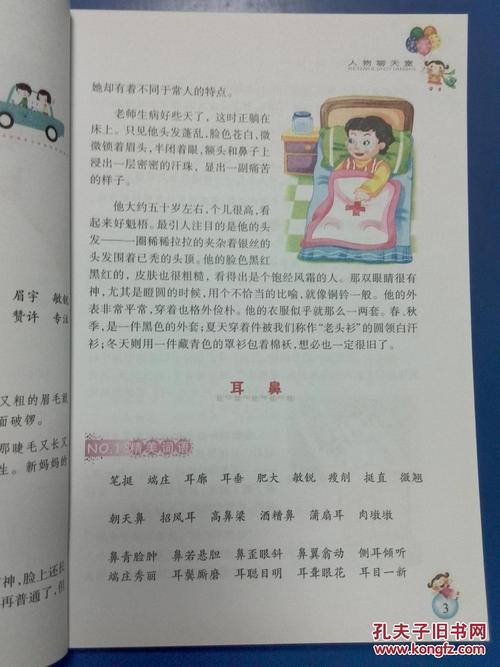 人物聊天室
她却有着不同于常人的特点。
老师生病好些天了，这时正躺在
床上。只见他头发蓬乱，脸色苍白，微
微锁着眉头，半闭着眼，额头和鼻子上
浸出一层密密的汗珠，显出一副痛苦
的样子。
他大约五十岁左右，个儿很高，看
起来好魁梧。最引人注目是他的头
发———圈稀稀拉拉的夹杂着银丝的
头发围着已秃的头顶。他的脸色黑红
黑红的，皮肤也很粗糙，看得出是个饱经风霜的人。那双眼睛很有
神，尤其是瞪圆的时候，用个不恰当的比喻，就像铜铃一般。他的外
表非常平常，穿着也格外俭朴。他的衣服似乎就那么一两套。春、秋
季，是一件黑色的外套；夏天穿着件被我们称作“老头衫”的圆领白汗
衫；冬天则用一件藏青色的罩衫包着棉袄，想必也一定很旧了。
耳 鼻
NO.1 精美词语
笔挺 端庄 耳廓 耳垂 肥大 敏锐 瘦削 挺直 微翘
朝天鼻 招风耳 高鼻梁 酒糟鼻 蒲扇耳 肉墩墩
鼻青脸肿 鼻若悬胆 鼻歪眼斜 鼻翼翕动 侧耳倾听
端庄秀丽 耳鬓厮磨 耳聪目明 耳聋眼花 耳目一新
3
眉宇 敏锐
赞许 专注
又粗的眉毛就
面破锣。
那睫毛又长又
生。新妈妈的
神，脸上还长
再普通了，但
孔夫子旧书网
www.kongfz.com